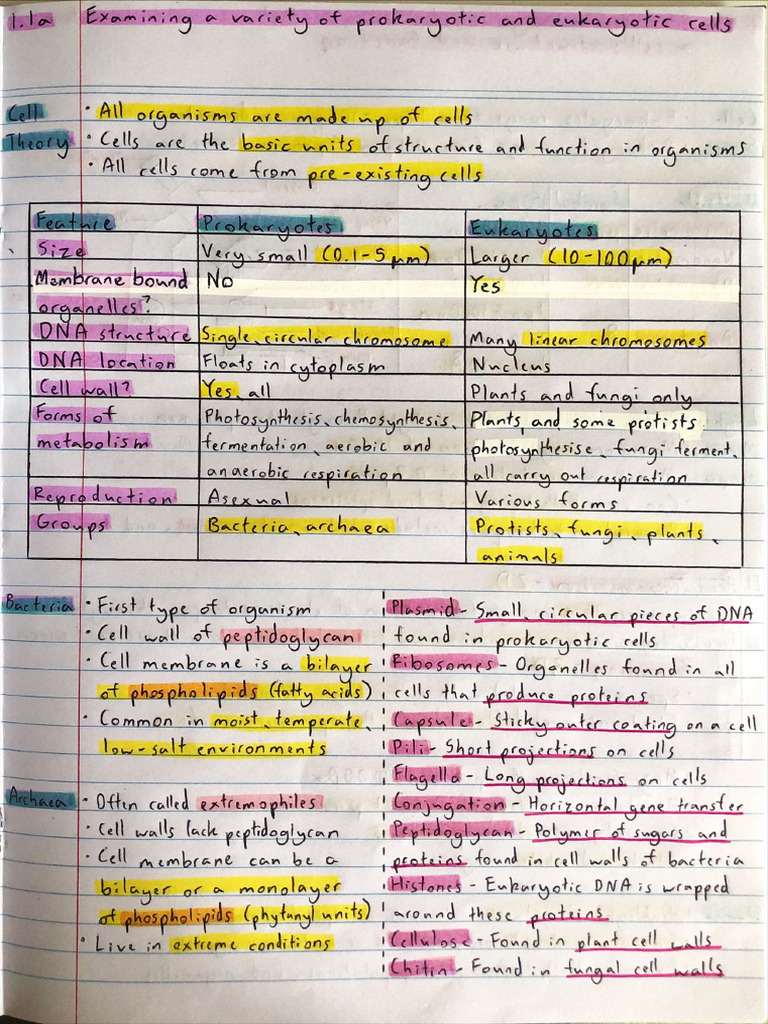 1.1a Examining a variety of prokaryotic and eukaryotic cells
Cell Theory
· All organisms are made up of cells
· Cells are the basic units of structure and function in organisms
· All cells come from pre-existing cells
Feature Prokaryotes Eukaryotes
Size Very small (0.1-5μm) Larger (10-100μm)
Membrane bound No Yes
organelles?
DNA structure Single, circular chromosome Many linear chromosomes
DNA location Floats in cytoplasm Nucleus
Cell wall? Yes, all Plants and fungi only
Forms of Photosynthesis, chemosynthesis, Plants and some protists
metabolism fermentation, aerobic and photosynthesise, fungi ferment,
anaerobic respiration all carry out respiration
Reproduction Asexual Various forms
Groups Bacteria, archaea Protists, fungi, plants,
animals
Bacteria · First type of organism
· Cell wall of peptidoglycan
· Cell membrane is a bilayer
of phospholipids (fatty acids)
· Common in moist, temperate,
low-salt environments
Archaea · Often called extremophiles
· Cell walls lack peptidoglycan
· Cell membrane can be a
bilayer or a monolayer
of phospholipids (phytanyl units)
· Live in extreme conditions
Plasmid - Small, circular pieces of DNA
found in prokaryotic cells
Ribosomes - Organelles found in all
cells that produce proteins
Capsule - Sticky outer coating on a cell
Pili - Short projections on cells
Flagella - Long projections on cells
Conjugation - Horizontal gene transfer
Peptidoglycan - Polymer of sugars and
proteins found in cell walls of bacteria
Histones - Eukaryotic DNA is wrapped
around these proteins
Cellulose - Found in plant cell walls
Chitin - Found in fungal cell walls